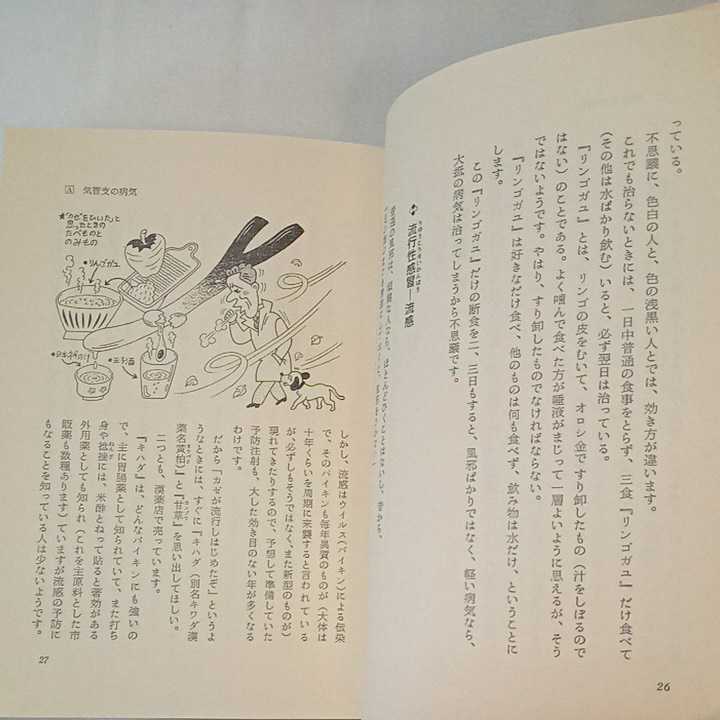 っている。
不思議に、色白の人と、色の浅黒い人とでは、効き方が違います。
これでも治らないときには、一日中普通の食事をとらず、三食『リンゴガユ』だけ食べて
（その他は水ばかり飲む）いると、必ず翌日は治っている。
『リンゴガユ』とは、リンゴの皮をむいて、オロシ金ですり卸したもの（汁をしぼるので
はない）のことである。よく噛んで食べた方が唾液がまじって一層よいように思えるが、そう
ではないようです。やはり、すり卸したものでなければならない。
『リンゴガユ』は好きなだけ食べ、他のものは何も食べず、飲み物は水だけ、ということに
します。
この『リンゴガユ』だけの断食を二、三日もすると、風邪ばかりではなく、軽い病気なら、
大抵の病気は治ってしまうから不思議です。
流行性感冒─流感
26
A 気管支の病気
★"カゼをひいた"と
思ったときの
たべものと
のみもの
●りんごガユ
しかし、流感はウイルス（バイキン）による伝染
で、そのバイキンも毎年異質のものが（大体は
十年くらいを周期に来襲すると言われている
が必ずしもそうではなく、また新型のものが）
現れてきたりするので、予想して準備していた
予防注射も、大した効き目のない年が多くなる
わけです。
だから「カゼが流行しはじめたぞ」というよ
うなときには、すぐに『キハダ（別名キワダ漢
薬名黄柏）と『甘草』を思い出してほしい。
二つとも、漢薬店で売っています。
『キハダ』は、どんなバイキンにも強いの
で、主に胃腸薬として知られていて、また打ち
身や捻挫には、米酢とねって貼ると著効がある
外用薬としても知られ（これを主原料とした市
販薬も数種あります）ていますが流感の予防に
もなることを知っている人は少ないようです。
27